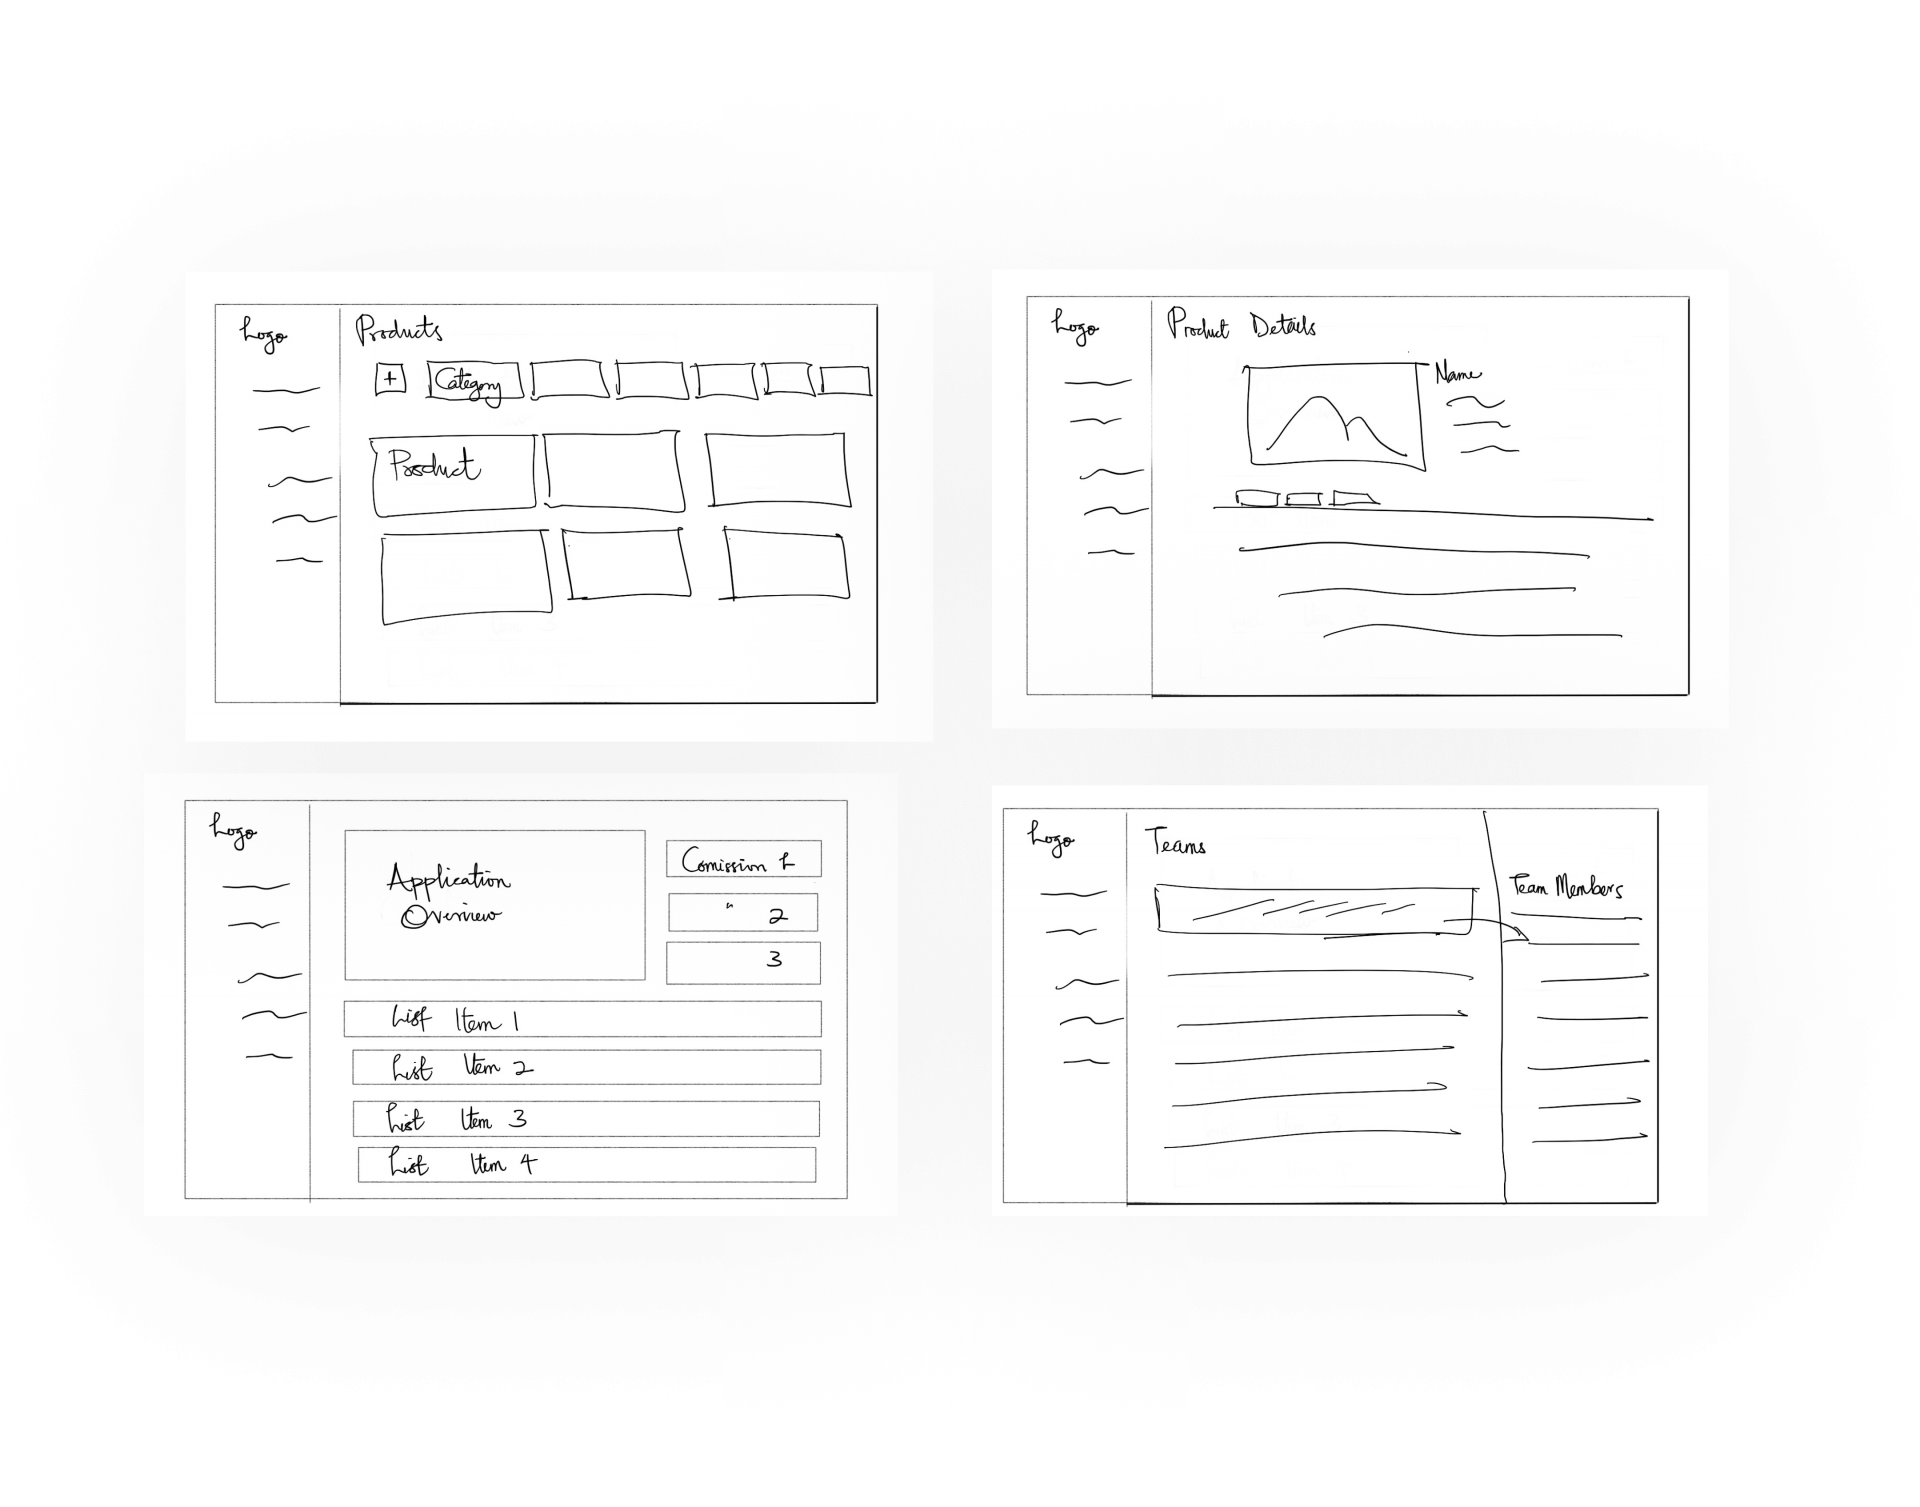 Logo
Products
+ Category
Product
Logo
Product Details
Name
Logo
Application
Overview
Comission 1
" 2
3
List Item 1
List Item 2
List Item 3
List Item 4
Logo
Teams
Team Members